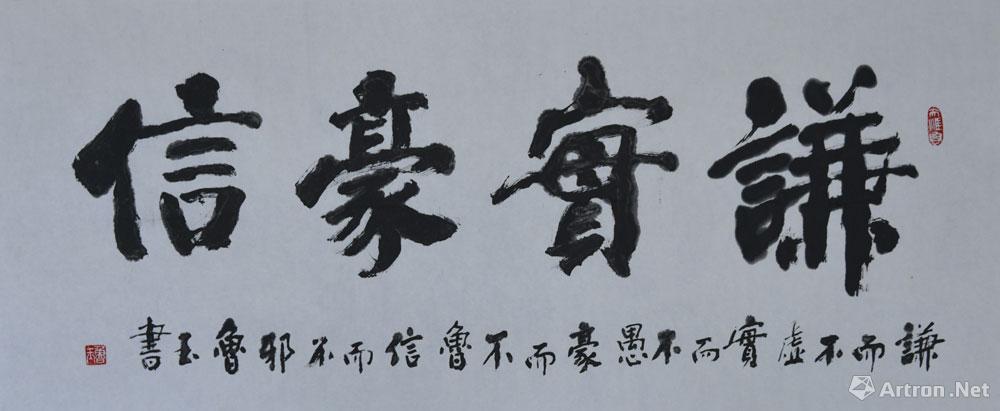 謙實豪信
謙而不虛實而不愚豪而不魯信而不邪魯玉書
Artron.Net